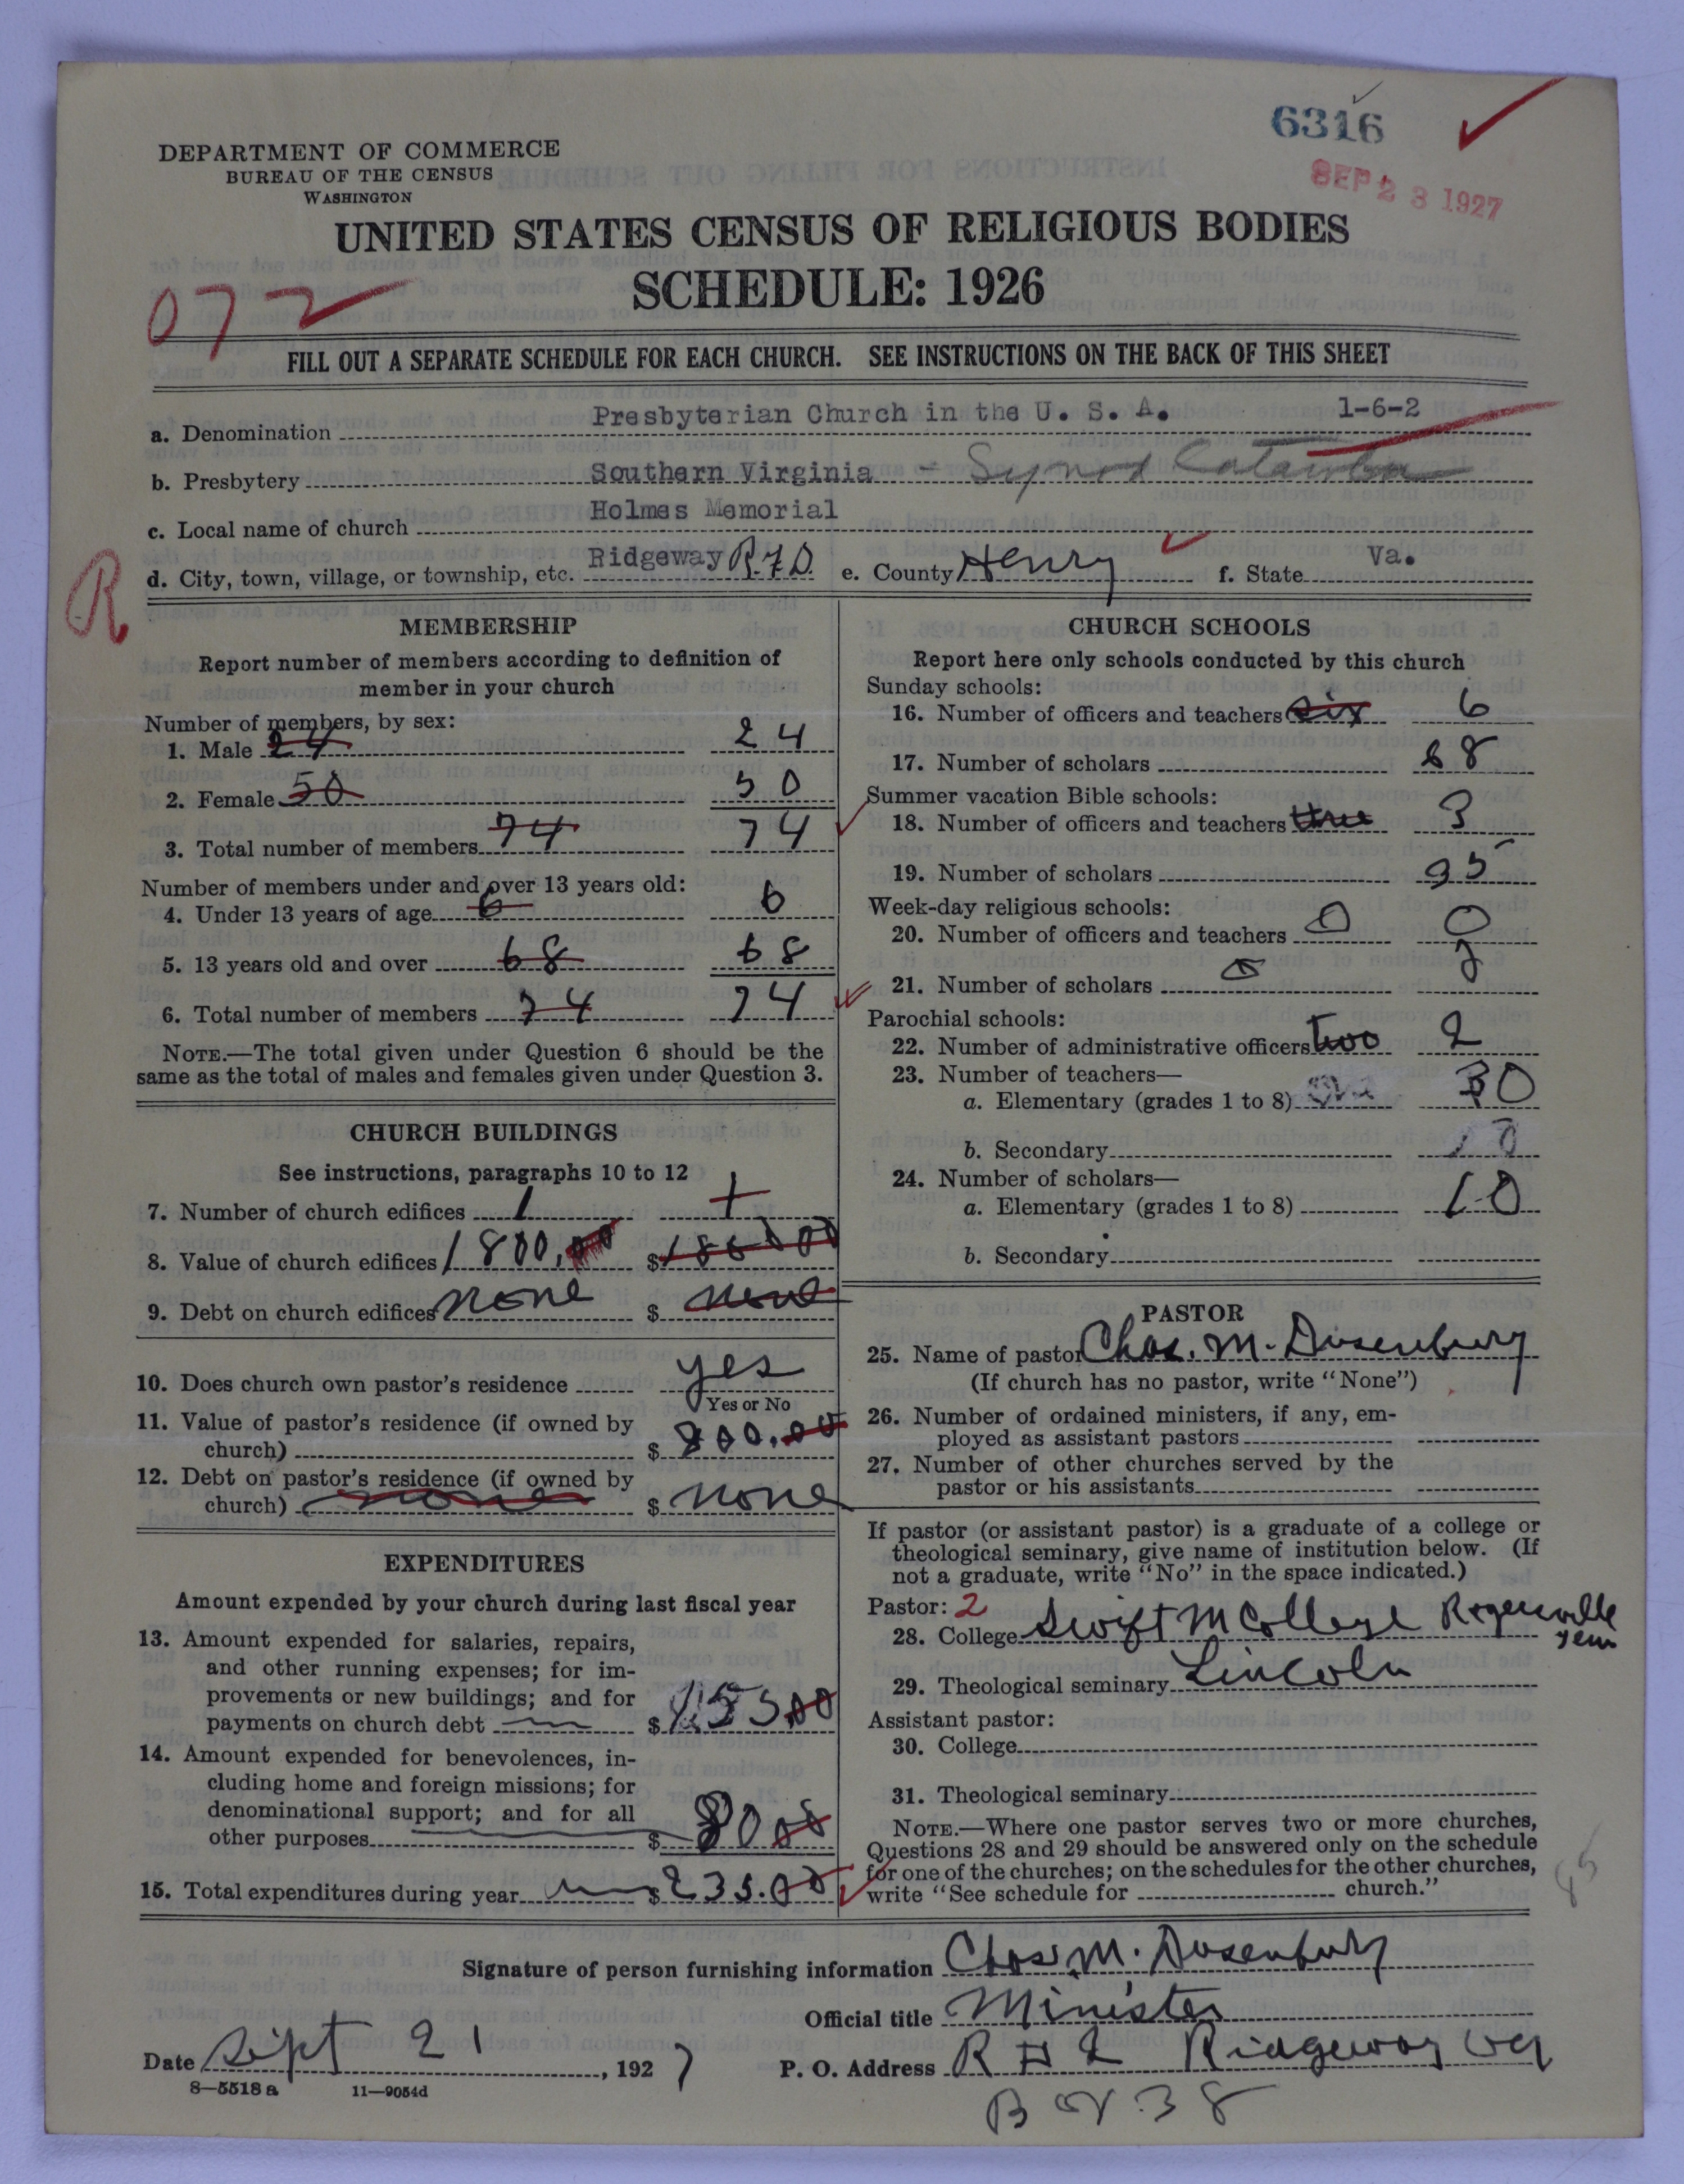 6316
SEP 23 1927
DEPARTMENT OF COMMERCE
BUREAU OF THE CENSUS
WASHINGTON
UNITED STATES CENSUS OF RELIGIOUS BODIES
SCHEDULE: 1926
072
FILL OUT A SEPARATE SCHEDULE FOR EACH CHURCH. SEE INSTRUCTIONS ON THE BACK OF THIS SHEET
a. Denomination Presbyterian Church in the U. S. A. 1-6-2
b. Presbytery Southern Virginia - Synod Catawba
c. Local name of church Holmes Memorial
d. City, town, village, or township, etc. Ridgeway R.F.D. e. County Henry f. State Va.
R
MEMBERSHIP
Report number of members according to definition of
member in your church
Number of members, by sex:
1. Male 24 24
2. Female 50 50
3. Total number of members 74 74
Number of members under and over 13 years old:
4. Under 13 years of age 6 6
5. 13 years old and over 68 68
6. Total number of members 74 74
NOTE.—The total given under Question 6 should be the
same as the total of males and females given under Question 3.
CHURCH BUILDINGS
See instructions, paragraphs 10 to 12
7. Number of church edifices 1 1
8. Value of church edifices 1800,00 $1800 00
9. Debt on church edifices none $ none
10. Does church own pastor's residence yes
Yes or No
11. Value of pastor's residence (if owned by
church) $ 800.00
12. Debt on pastor's residence (if owned by
church) none $ none
EXPENDITURES
Amount expended by your church during last fiscal year
13. Amount expended for salaries, repairs,
and other running expenses; for im-
provements or new buildings; and for
payments on church debt $ 155 00
14. Amount expended for benevolences, in-
cluding home and foreign missions; for
denominational support; and for all
other purposes $ 80 00
15. Total expenditures during year $ 235.00
CHURCH SCHOOLS
Report here only schools conducted by this church
Sunday schools:
16. Number of officers and teachers six 6
17. Number of scholars 68
Summer vacation Bible schools:
18. Number of officers and teachers three 3
19. Number of scholars 35
Week-day religious schools:
20. Number of officers and teachers 0 0
21. Number of scholars 0
Parochial schools:
22. Number of administrative officers two 2
23. Number of teachers—
a. Elementary (grades 1 to 8)
b. Secondary
24. Number of scholars—
a. Elementary (grades 1 to 8) 10
b. Secondary
PASTOR
25. Name of pastor Chas. M. Dusenbury
(If church has no pastor, write "None")
26. Number of ordained ministers, if any, em-
ployed as assistant pastors
27. Number of other churches served by the
pastor or his assistants
If pastor (or assistant pastor) is a graduate of a college or
theological seminary, give name of institution below. (If
not a graduate, write "No" in the space indicated.)
Pastor: 2
28. College Swift M College Rogersville
29. Theological seminary Lincoln
Assistant pastor:
30. College
31. Theological seminary
NOTE.—Where one pastor serves two or more churches,
Questions 28 and 29 should be answered only on the schedule
for one of the churches; on the schedules for the other churches,
write "See schedule for church."
Signature of person furnishing information Chas. M. Dusenbury
Official title Minister
Date Sept 21, 1927 P. O. Address R # 2 Ridgeway Va
Box 38
8—5518 a 11—9054d